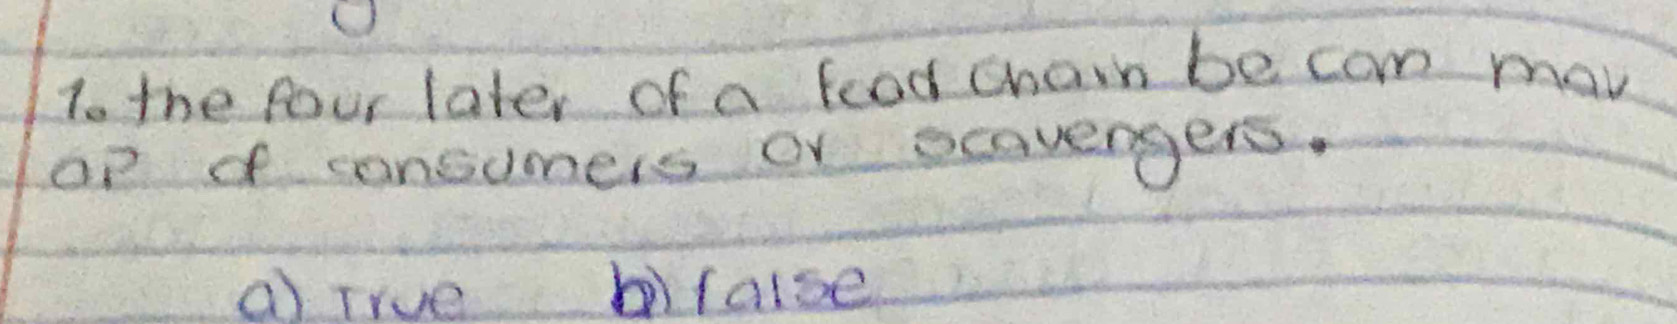 1. the four later of a food chain be can may
of consumers or scavengers.
a) True b) false